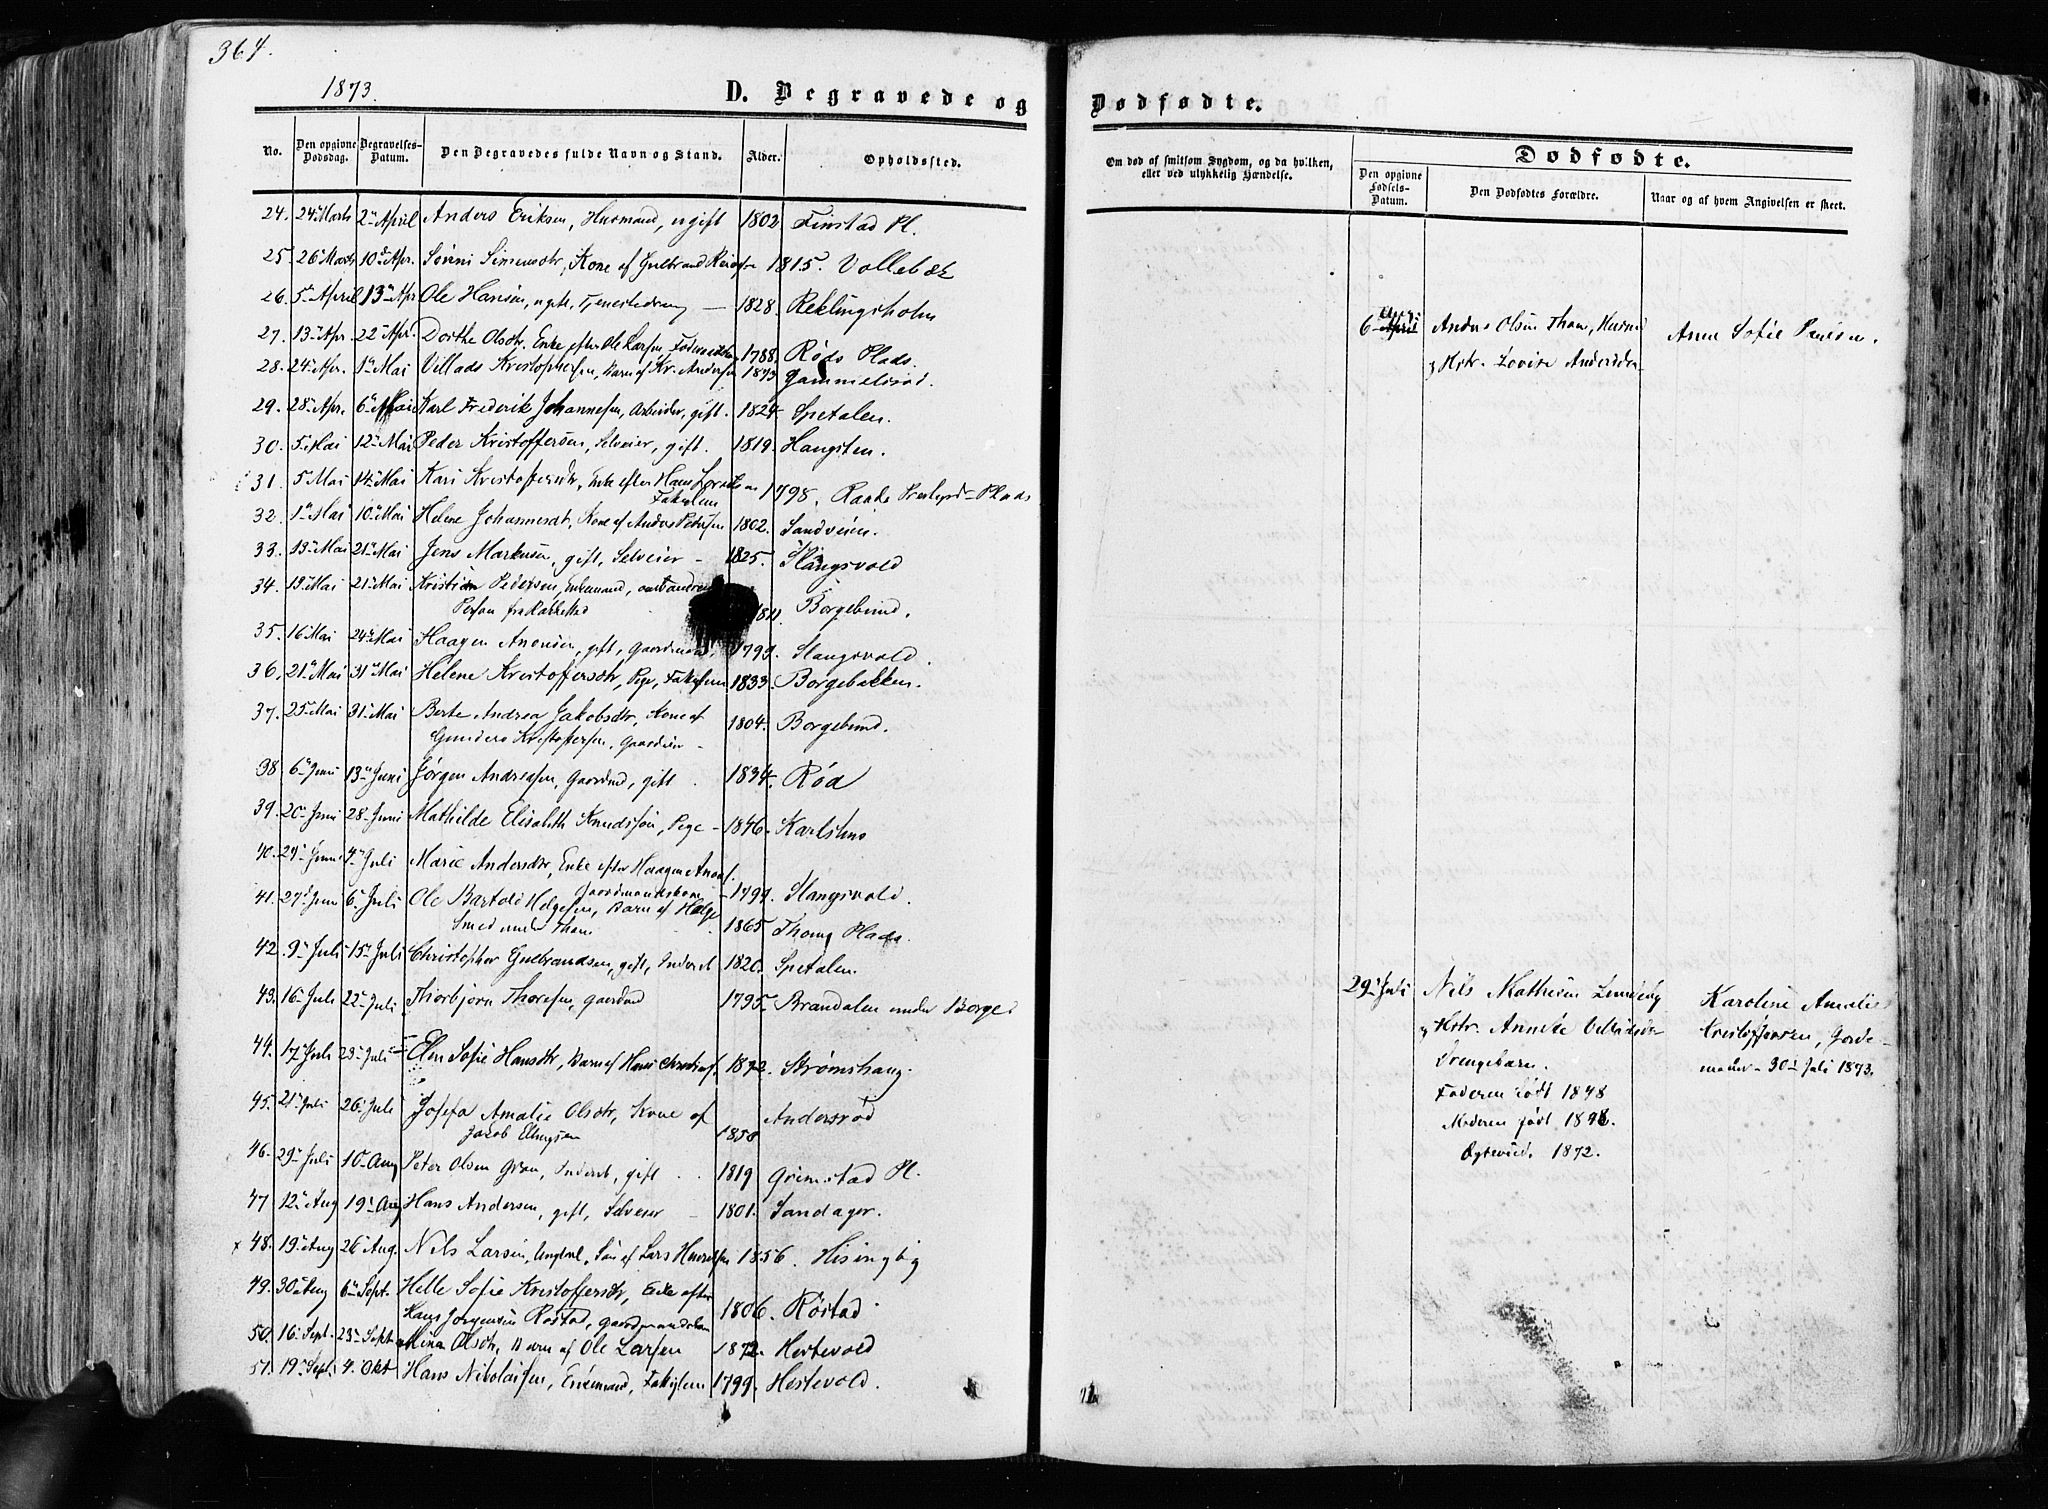 364.
1873.
D. Begravede og Dødfødte.
No. Den opgivne Dødsdag. Begravelses-Datum. Den Begravedes fulde Navn og Stand. Alder. Opholdssted.
Om død af smitsom Sygdom, og da hvilken, eller ved ulykkelig Hændelse.
Dødfødte.
Den opgivne Fødsels-Datum. Den Dødfødtes Forældre. Naar og af hvem Angivelsen er skeet.
24. 24 Marts 2 April Anders Eriksen, Husmand, ugift 1802 Finstad Pl.
25. 26 Marts 10 Apr. Sørini Simensdtr, Kone af Gulbrand 1815. Vollebæk
26. 5 April 13 Apr Ole Hansen, ugift, Tjenestedreng 1828. Reklingsholm
27. 13 Apr 22 Apr. Dorthe Olsdtr. Enke efter Ole Larsen, 1788. Røds Plads.
28. 24 Apr. 1 Mai Villads Kristophersen, Barn af Kr. Andersen 1873 Gammelsrød.
29. 28 Apr. 6 Mai Karl Frederik Johannesen, Arbeider, gift. 1824. Spetalen.
30. 5 Mai 12 Mai Peder Kristoffersen, Selveier, gift. 1819. Hangsten.
31. 5 Mai 14 Mai Kari Kristoffersdtr, Enke efter Hans
Fattiglem 1798. Raade Prestegrd-Plads
32. 1 Mai 10 Mai Helene Johannesdt, Kone af Anders Petersen 1802. Sandveien.
33. 13 Mai 21 Mai Jens Markusen, gift, Selveier - 1825. Slangsvold
34. 13 Mai 21 Mai Kristian Pedersen, Enkemand,
Person fra Rakkestad 1811. Borgebund.
35. 16 Mai 24 Mai Haagen Anonsen, gift, Gaardmand, 1793. Slangsvold.
36. 21 Mai 31 Mai Helene Kristoffersdtr, Pige, 1833. Borgebakken.
37. 25 Mai 31 Mai Berte Andrea Jakobsdtr, Kone af 1804. Borgebund.
Gunders Kristoffersen, Gaardeier -
38. 6 Juni 13 Juni Jørgen Andreasen, Gaardmd, gift. 1834. Rød
39. 20 Juni 28 Juni Mathilde Elisabeth Knudssøn, Pige - 1846. Karlshus
40. 24 Juni 4 Juli Marie Andersdtr, Enke efter Haagen Anons.
Gaardmandskone 1794. Slangsvold.
41. 27 Juni 6 Juli Ole Bartold Helgesen, Barn af Helge
Smed under Thom 1865 Thoms Plads.
42. 9 Juli 15 Juli Christopher Gulbrandsen, gift, Inderst 1820. Spetalen.
43. 16 Juli 22 Juli Thorbjørn Thoresen, Gaardmd 1795. Brandalen under Borge
44. 17 Juli 23 Juli Elen Sofie Hansdtr, Barn af Hans 1872. Strømshaug.
45. 21 Juli 26 Juli Josefa Amalie Olsdtr, Kone af
Jakob Ellingsen 1858 Andersrød
46. 29 Juli 10 Aug Peter Olsen Gran, Inderst, gift. 1819 Grimstad Pl.
47 12 Aug 19 Aug Hans Andersen, gift, Selveier - 1801. Sandager.
x 48. 19 Aug 26 Aug. Nils Larsen, Ungkal, Søn af Lars 1856. Hisingby
49. 30 Aug 6 Sept. Helle Sofie Kristoffersdtr, Enke efter
Hans Jørgensen Røstad, 1806. Røstad
50. 16 Sept. 23 Sept Mina Olsdtr, Barn af Ole Larsen 1872. Hestevold
51. 19 Sept. 4. Okt Hans Nikolaisen, Enkemand, Fattiglem 1799. Hestevold.
6 April Anders Olsen Thom, Husmd Anne Sofie Paulsen.
Hstr. Lovise Andersdtr
29 Juli Nils Mathisen Lundeby Karoline Amalie
Hstr. Annette Kristoffersen, Jorde-
Drengebarn. moder - 30 Juli 1873.
Faderen født 1848
Moderen født 1848.
Egteviede. 1872.